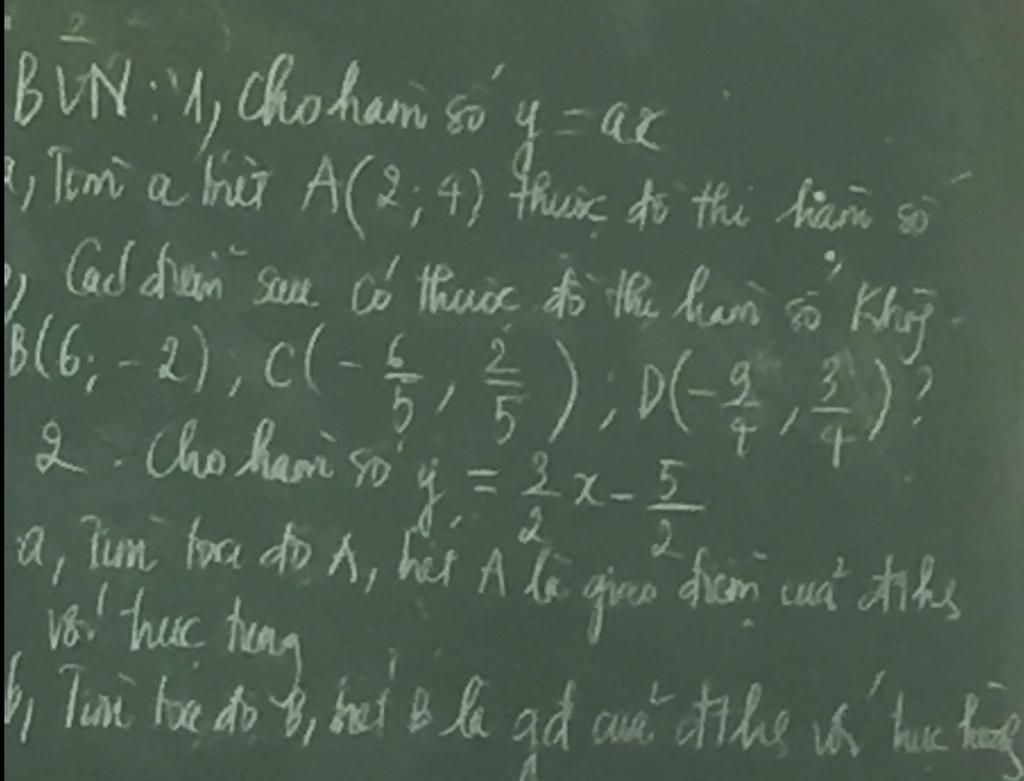 BVN: 1, Cho hàm số y = ax
a, Tìm a biết A(2; 4) thuộc đồ thị hàm số
b, Các điểm sau có thuộc đồ thị hàm số không
B(6; -2), C(-6/5, 2/5); D(-9/4, 3/4)?
2. Cho hàm số y = 3/2 x - 5/2
a, Tìm toạ độ A, biết A là giao điểm của đths
với trục tung
b, Tìm toạ độ B, biết B là gđ của đths với trục hoành